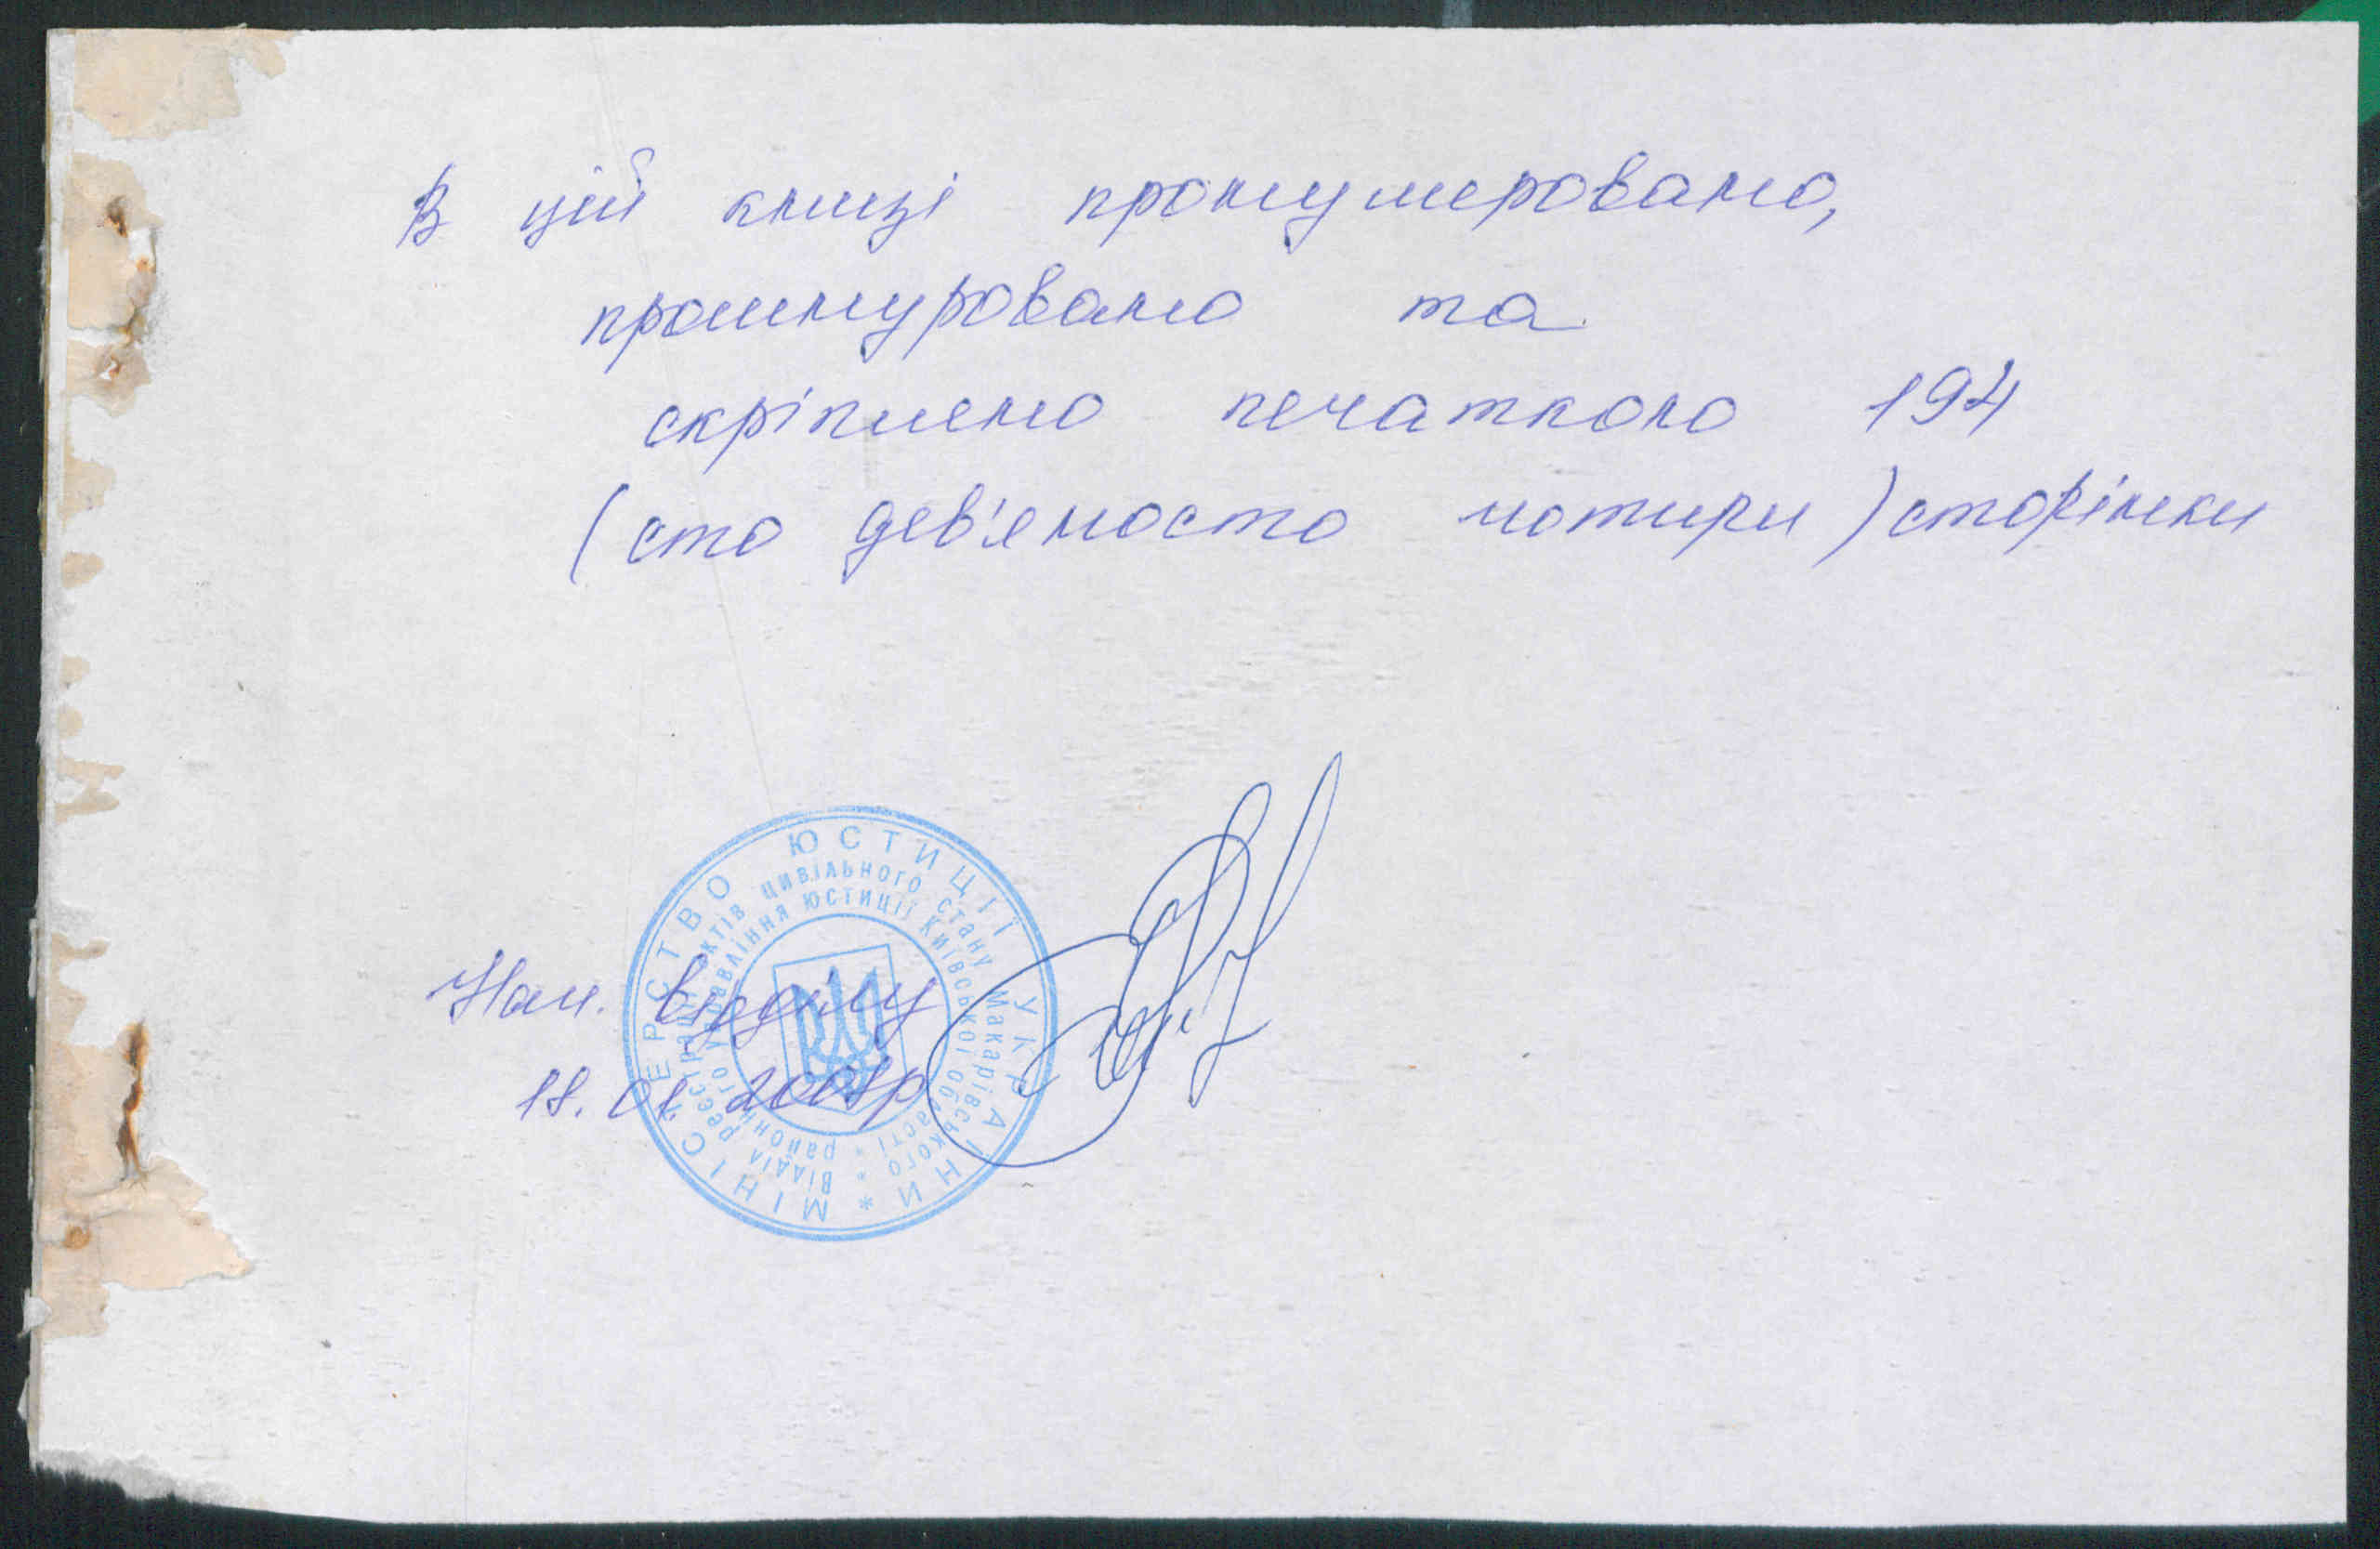 В цій книзі пронумеровано,
прошнуровано та
скріплено печаткою 194
(сто дев'яносто чотири) сторінки
Нач. відділу
18.01. 2008р
МІНІСТЕРСТВО ЮСТИЦІЇ УКРАЇНИ *
Відділ реєстрації актів цивільного стану Макарівського *
районного управління юстиції Київської області *